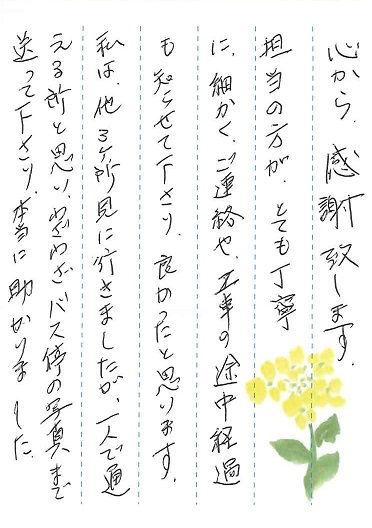 心から、感謝致します。
担当の方が、とても丁寧
に、細かく、ご連絡や、工事の途中経過
も知らせて下さり、良かったと思います。
私は、他3ヶ所見に行きましたが、一人で通
える所と思い、わざわざバス停の写真まで
送って下さり、本当に助かりました。